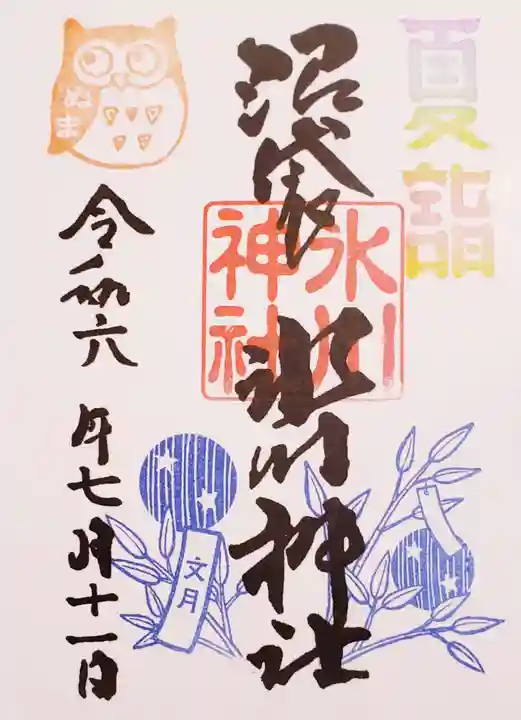 夏詣
沼袋 氷川神社
氷川
神社
文月
ぬま
令和六年七月十一日